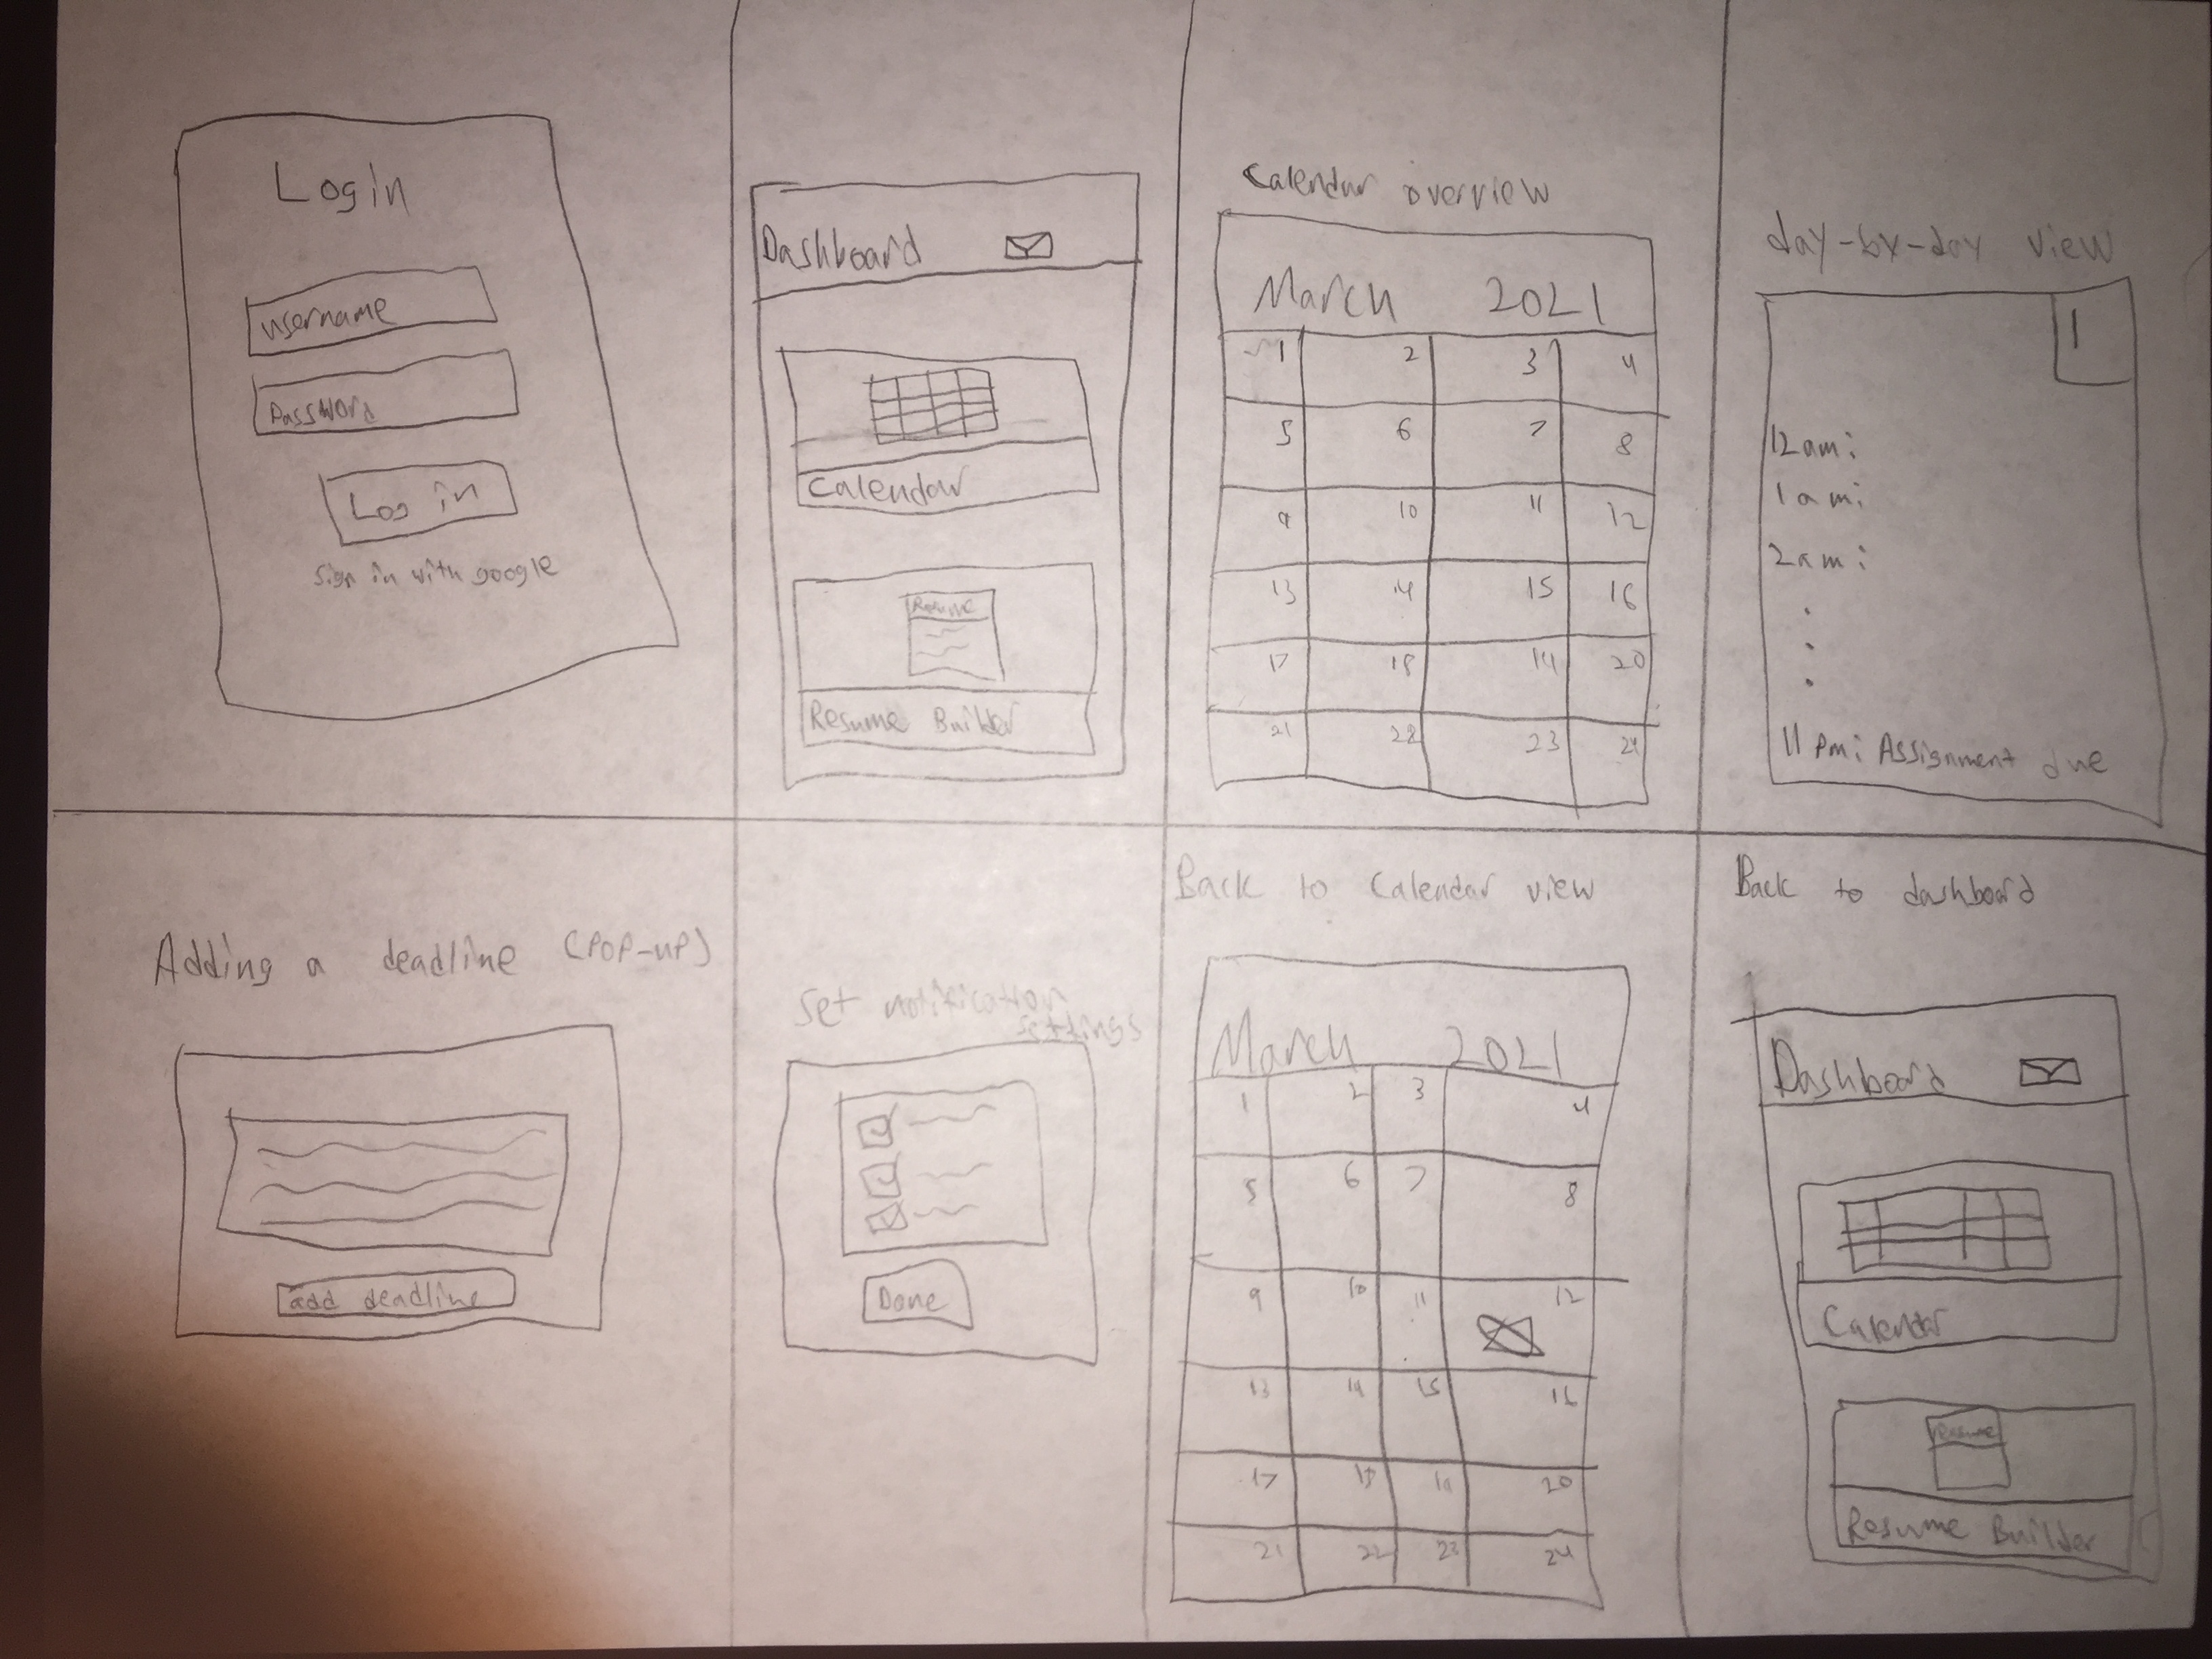 Login
username
Password
Log in
Sign in with google
Dashboard
Calendar
Resume
Resume Builder
Calendar overview
March 2021
1 2 3 4
5 6 7 8
9 10 11 12
13 14 15 16
17 18 19 20
21 22 23 24
day-by-day view
1
12am:
1am:
2am:
11pm: Assignment due
Adding a deadline (POP-UP)
add deadline
Set notification
settings
Done
Back to Calendar view
March 2021
1 2 3 4
5 6 7 8
9 10 11 12
13 14 15 16
17 18 19 20
21 22 23 24
Back to dashboard
Dashboard
Calendar
Resume
Resume Builder